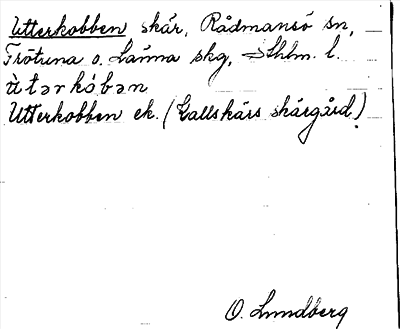 Utterkobben skär, Rådmansö sn,
Frötuna o. Länna skg, Sthlm. l.
ùtərkóbən
Utterkobben ek. (Gallskärs skärgård)
O. Lundberg